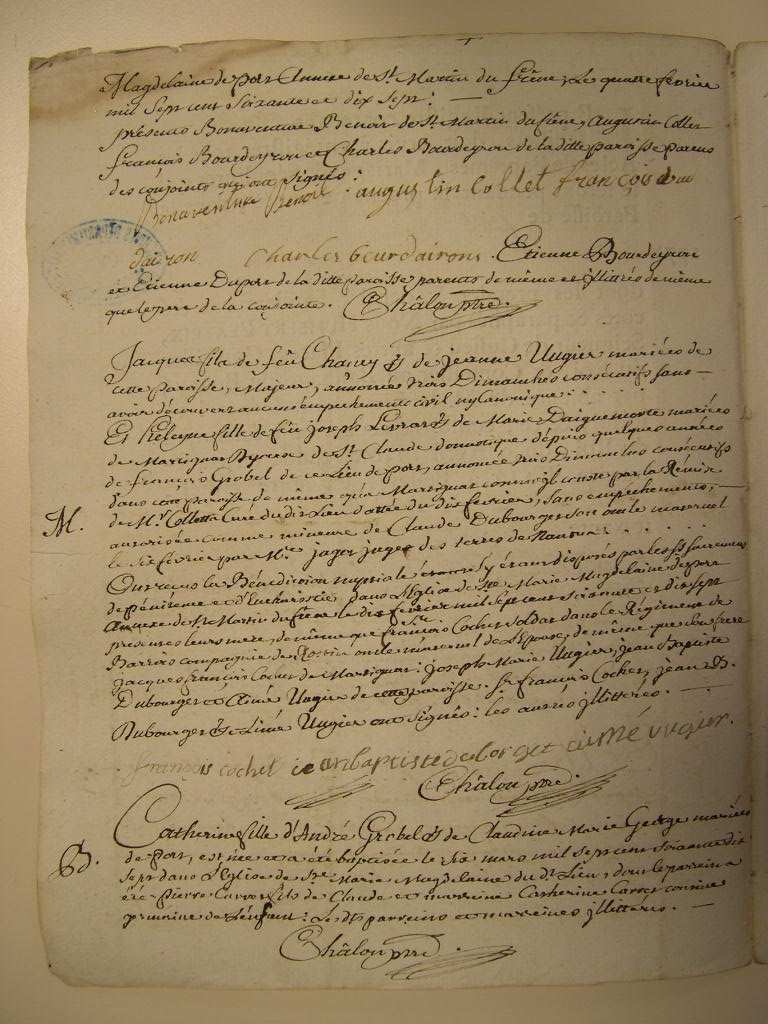 Magdelaine de port Annexe de St. Martin du frêne, Le quatre fevrier
mil sept cent soixante et dix sept :
présents Bonaventure Benoit de St. Martin du frêne, Augustin Collet
françois Bourdeyron et Charles Bourdeyron de la ditte paroisse parens
des conjoints qui ont signés :
Bonaventure Benoit augustin Collet françois bour
dairon Charles bourdairons. Etienne Bourdeyron
et Etienne Duport de la ditte paroisse parents de même et jllitrés de même
que le pere de la conjointe. Châlon ptre.
Jacques fils de feu Chaney & de jeanne Uugier mariées de
cette paroisse, Majeur, annoncé trois Dimanches consécutifs sans
avoir découvert aucun émpechement civil ny canonique :
Et fille de feu joseph & de Marie mariées
de Martignat de St. Claude domestique dépuis quelques années
de françois Grobel de ce Lieu de port, annoncée trois Dimanches consécutifs
dans cette paroisse de même que Martignat comme il conste par la Remise
de Mr. Colletta Curé du dit Lieu dattée du dix fevrier, sans empéchements,
autorisée comme mineure de Claude Dubourget son oncle maternel
le six fevrier par Me. jager juge des terres de Nantua :
Ont reçus la Bénédiction nuptiale y étant disposés par les sts sacremens
de pénitence et d'Eucharistie, dans l'Eglise de Ste. Marie Magdelaine de port
Annexe de St. Martin du frêne le dix fevrier mil sept cent soixante et dix sept
présents leurs mere, de même que françois Cochet soldat dans le Régiment de
Barrois compagnie de oncle maternel de l'Epouse, de même que son frere
jacques françois Cochet de Martignat : joseph Marie Uugier, jean Baptiste
Dubourget & Aimé Uugier de cette paroisse. Sr. françois Cochet, jean B.
Dubourget & Aimé Uugier ont signés : les autres jllittérés.
françois cochet jean baptiste duborget aimé vugier.
Châlon ptre.
M.
Catherine fille d'André Grobel & de Claudine Marie George mariées
de Port, est née et a été baptisée le six mars mil sept cent soixante dix
sept dans l'Eglise de Ste. Marie Magdelaine du dt. Lieu, dont le parrein a
été Pierre Carrot fils de Claude et marreine Catherine Carrot cousine
germaine de l'énfant : Les dts parreins et marreines jllittérés.
B.
Châlon ptre.